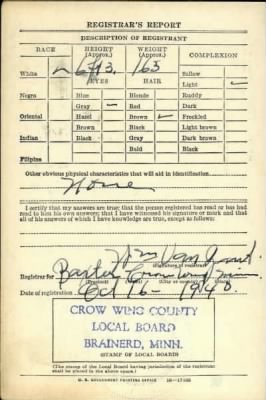 REGISTRAR'S REPORT
DESCRIPTION OF REGISTRANT
RACE HEIGHT (Approx.) WEIGHT (Approx.) COMPLEXION
White 163 Sallow
EYES HAIR Light
Negro Blue Blonde Ruddy
Gray Red Dark
Oriental Hazel Brown Freckled
Brown Black Light brown
Indian Black Gray Dark brown
Bald Black
Filipino
Other obvious physical characteristics that will aid in identification
None
I certify that my answers are true; that the person registered has read or has had
read to him his own answers; that I have witnessed his signature or mark and that
all of his answers of which I have knowledge are true, except as follows:
Wm
(Signature of registrar)
Registrar for Baxter Crow Wing Minn
Date of registration Oct 16 - 1940
CROW WING COUNTY
LOCAL BOARD
BRAINERD, MINN.
(STAMP OF LOCAL BOARD)
(The stamp of the Local Board having jurisdiction of the registrant
shall be placed in the above space.)
U. S. GOVERNMENT PRINTING OFFICE